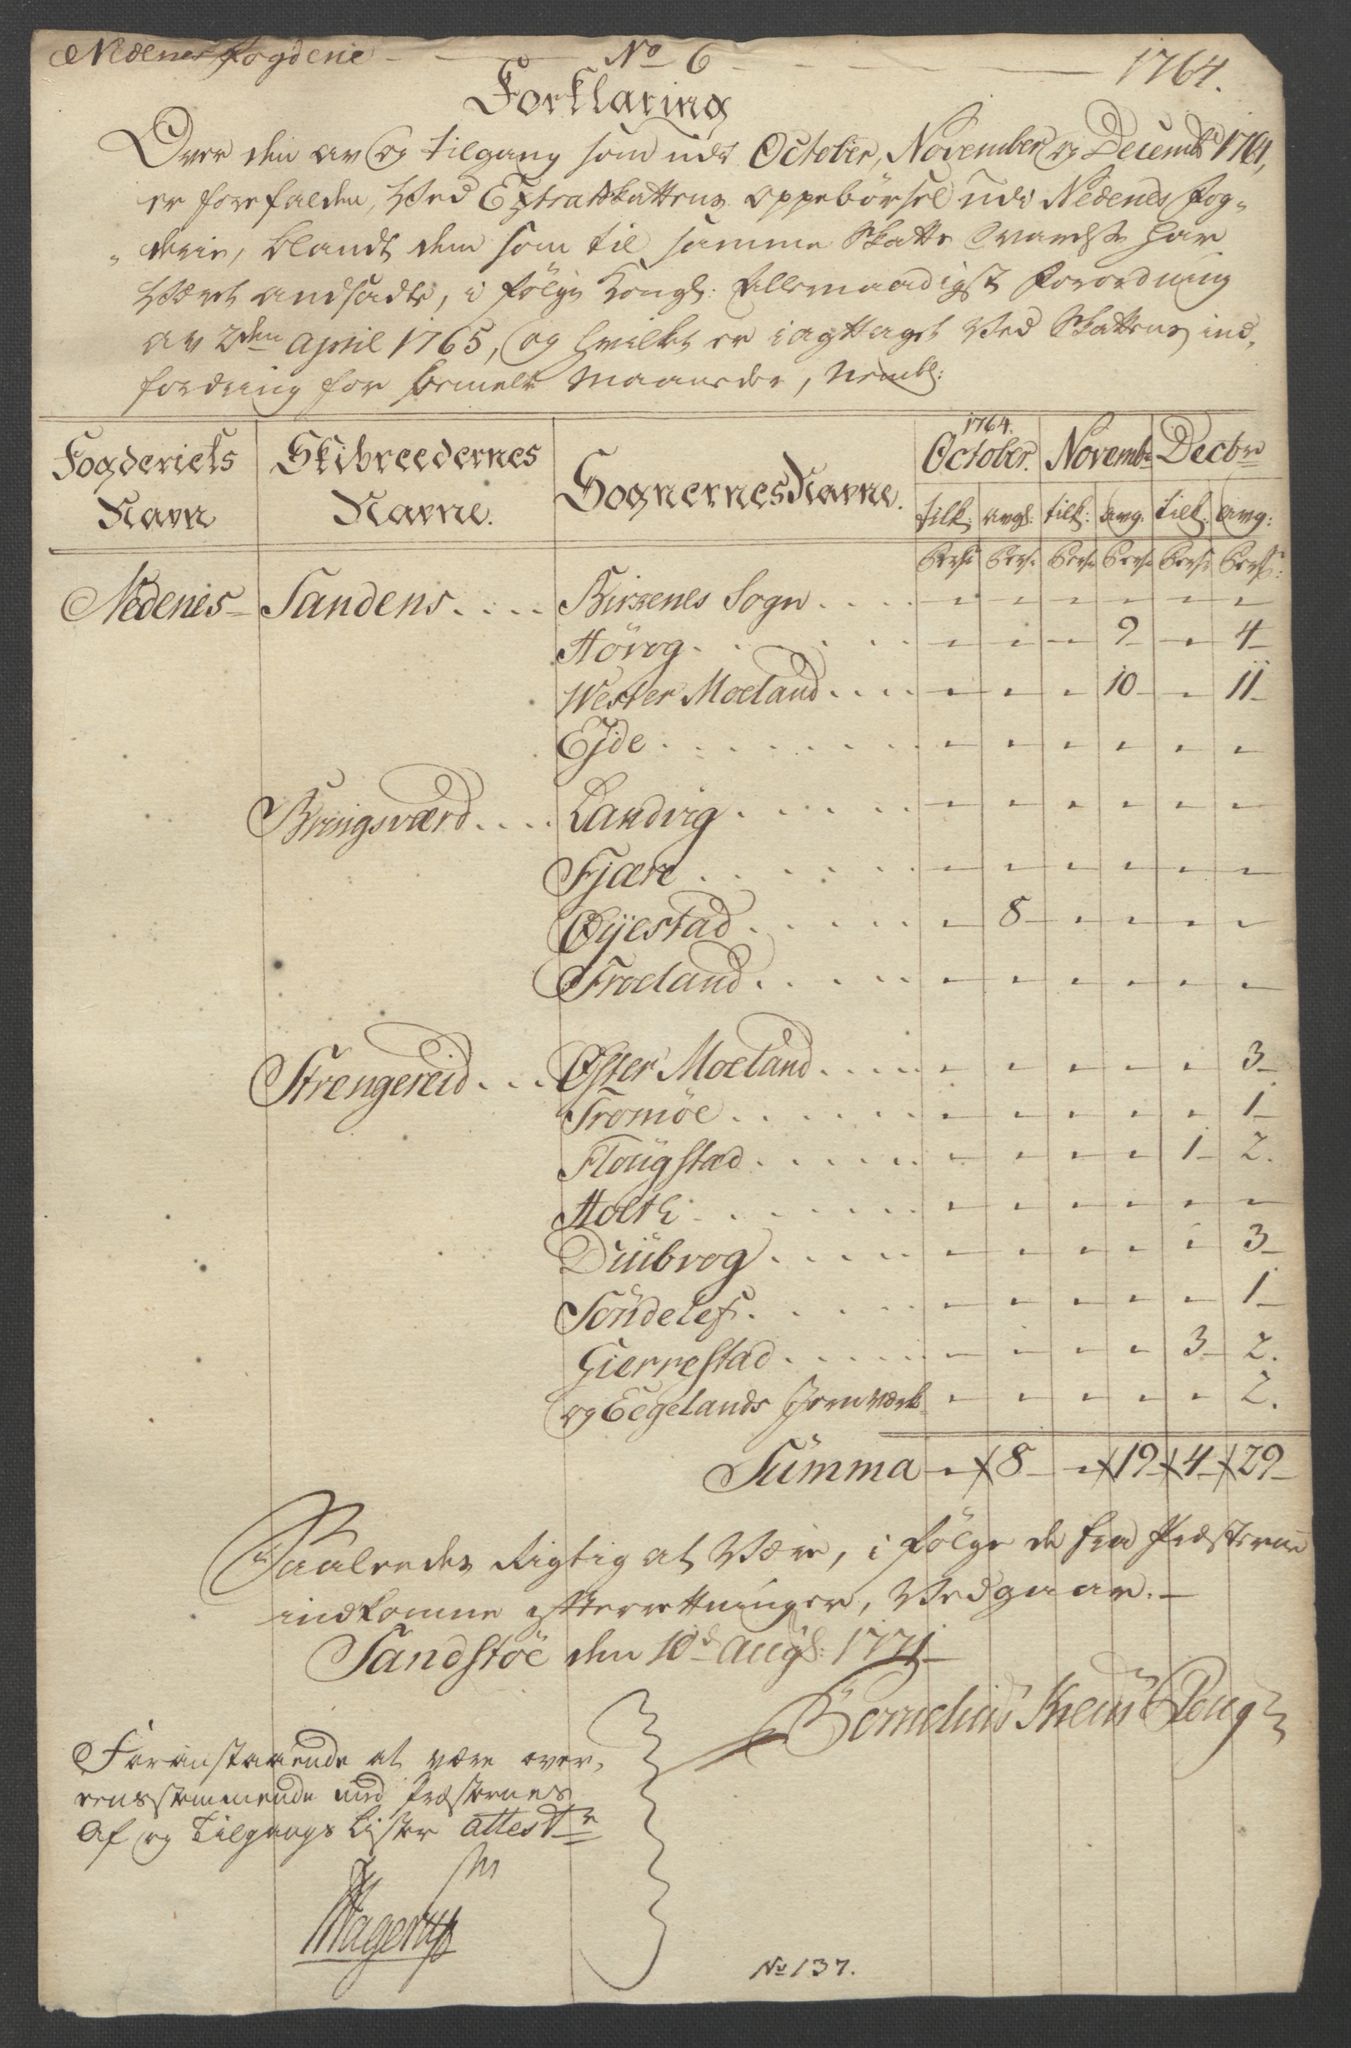 Nedenes fogderie - - No 6 - - 1764.
Forklaring
Over den av og tilgang som udi October, November og Decembr 1764,
er forefalden, ved Extraskattens oppebörsel udi Nedenes Fog-
"derie, blandt dem som til samme Skatte Svarelse har
været andsadte, i fölge Kongl: Allernaadigst Forordning
av 2den April 1765, og hvilket er iagttaget ved Skattens ind-
fordring for bemelte Maaneder, Nembl:
Fogderiets Navn Skibreedernes Navne. Sognernes Navne. 1764. October. Novembr Decbr
tilk: avg: tilk: avg. tilk: avg:
Pers: Pers: Pers: Pers: Pers: Pers:
Nedenes Sandens .... Birkenes Sogn .... - - - - - -
Hövog . . . . - - - 9 - 4
Wester Moeland .... - - - 10 - 11
Ejde . . . . - - - - - -
Bringsværd .... Landvig . . . . - - - - - -
Fjære . . . . - - - - - -
Öyestad . . . . - 8 - - - -
Froeland . . . . - - - - - -
Strengereid ... Öster Moeland .... - - - - - 3
Tromöe . . . . - - - - - 1
Flougstad . . . . - - - - 1 2.
Holth . . . . - - - - - -
Dÿbvog . . . . - - - - - 3
Söndelef . . . . - - - - - 1
Gierrestad . . . . - - - - 3 2.
og Eegelands Jernværk - - - - - 2.
Summa - 8 - 19 4 29
Saaledes Rigtig at Være, i fölge de fra Præsterne
indkomne efterretninger, Vedgaar. -
Sandstöe den 10d Aug: 1771
Cornelius
Foranstaaende at være over-
eensstemmende med Præsternes
Af og Tilgangs Lister attester
Hagerup
No 137.